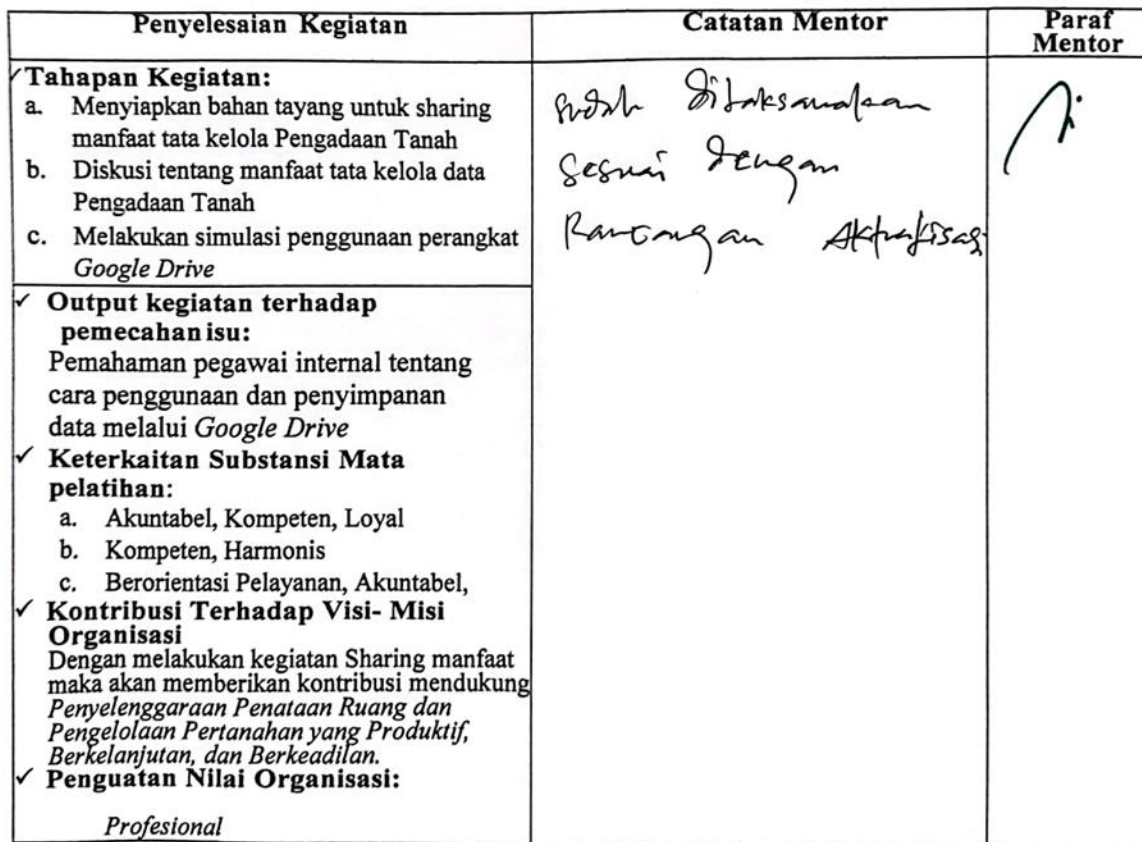 Penyelesaian Kegiatan
Catatan Mentor
Paraf
Mentor
✓ Tahapan Kegiatan:
a. Menyiapkan bahan tayang untuk sharing
manfaat tata kelola Pengadaan Tanah
b. Diskusi tentang manfaat tata kelola data
Pengadaan Tanah
c. Melakukan simulasi penggunaan perangkat
Google Drive
✓ Output kegiatan terhadap
pemecahan isu:
Pemahaman pegawai internal tentang
cara penggunaan dan penyimpanan
data melalui Google Drive
✓ Keterkaitan Substansi Mata
pelatihan:
a. Akuntabel, Kompeten, Loyal
b. Kompeten, Harmonis
c. Berorientasi Pelayanan, Akuntabel,
✓ Kontribusi Terhadap Visi- Misi
Organisasi
Dengan melakukan kegiatan Sharing manfaat
maka akan memberikan kontribusi mendukung
Penyelenggaraan Penataan Ruang dan
Pengelolaan Pertanahan yang Produktif,
Berkelanjutan, dan Berkeadilan.
✓ Penguatan Nilai Organisasi:
Profesional
sudah dilaksanakan
sesuai dengan
Rancangan Aktualisasi